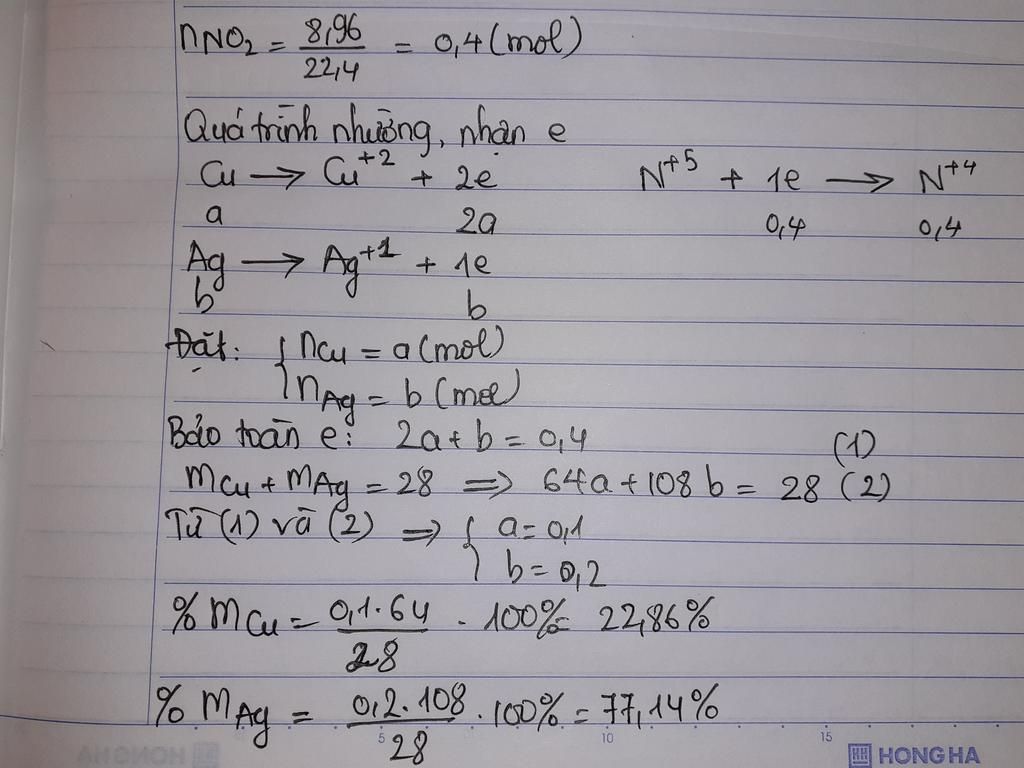 nNO₂ = 8,96/22,4 = 0,4 (mol)
Quá trình nhường, nhận e
Cu → Cu⁺² + 2e N⁺⁵ + 1e → N⁺⁴
a 2a 0,4 0,4
Ag → Ag⁺¹ + 1e
b b
Đặt: { nCu = a (mol)
{ nAg = b (mol)
Bảo toàn e: 2a + b = 0,4 (1)
mCu + mAg = 28 => 64a + 108b = 28 (2)
Từ (1) và (2) => { a = 0,1
{ b = 0,2
% mCu = 0,1.64/28 . 100% = 22,86%
% mAg = 0,2.108/28 . 100% = 77,14%
5 10 15
HONG HA